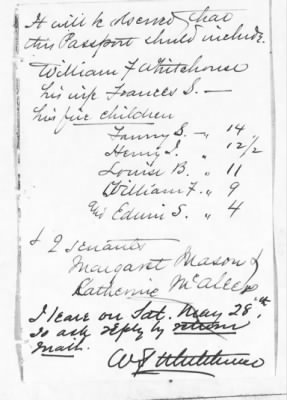 It will be observed that
this Passport should include.
William F Whitehouse
his wife Frances S. —
his five children
Fanny S. — " 14
Henry J. " 12 1/2
Louise B. " 11
William F. " 9
and Edwin S. " 4
& 2 servants
Margaret Mason &
Katherine McAleer
I leave on Sat. May 28th,
So ask reply by return
mail.